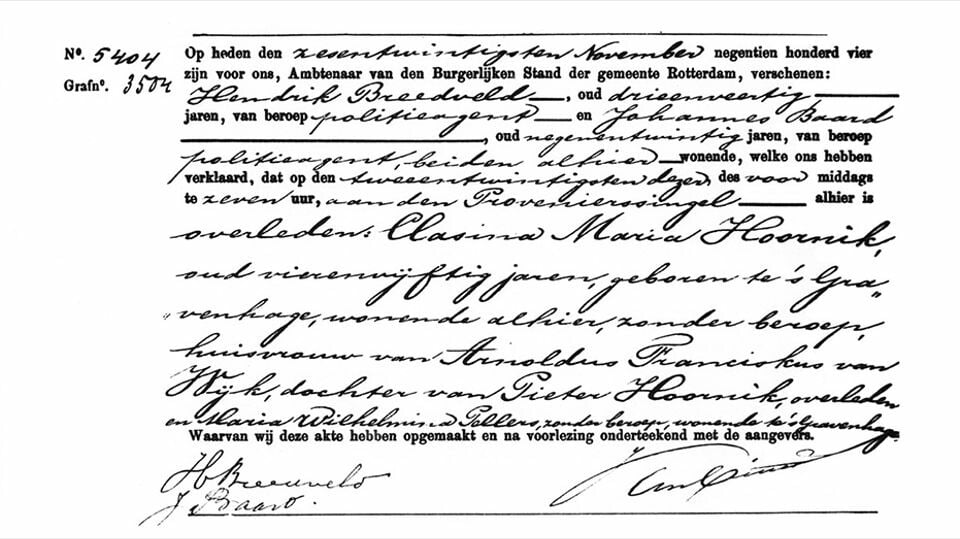 Nº. 5404 Op heden den zesentwintigsten November negentien honderd vier
Grafnº. 3504 zijn voor ons, Ambtenaar van den Burgerlijken Stand der gemeente Rotterdam, verschenen:
Hendrik Breedveld, oud drieenveertig
jaren, van beroep politieagent en Johannes Baard
, oud negenentwintig jaren, van beroep
politieagent, beiden alhier wonende, welke ons hebben
verklaard, dat op den tweeentwintigsten dezer, des voor middags
te zeven uur, aan den Provenierssingel alhier is
overleden: Clasina Maria Hoornik,
oud vierenvijftig jaren, geboren te 's Gra„
„venhage, wonende alhier, zonder beroep,
huisvrouw van Arnoldus Franciskus van
Wijk, dochter van Pieter Hoornik, overleden
en Maria Wilhelmina Pellers, zonder beroep, wonende te 's Gravenhage.
Waarvan wij deze akte hebben opgemaakt en na voorlezing onderteekend met de aangevers.
H Breedveld
J Baard